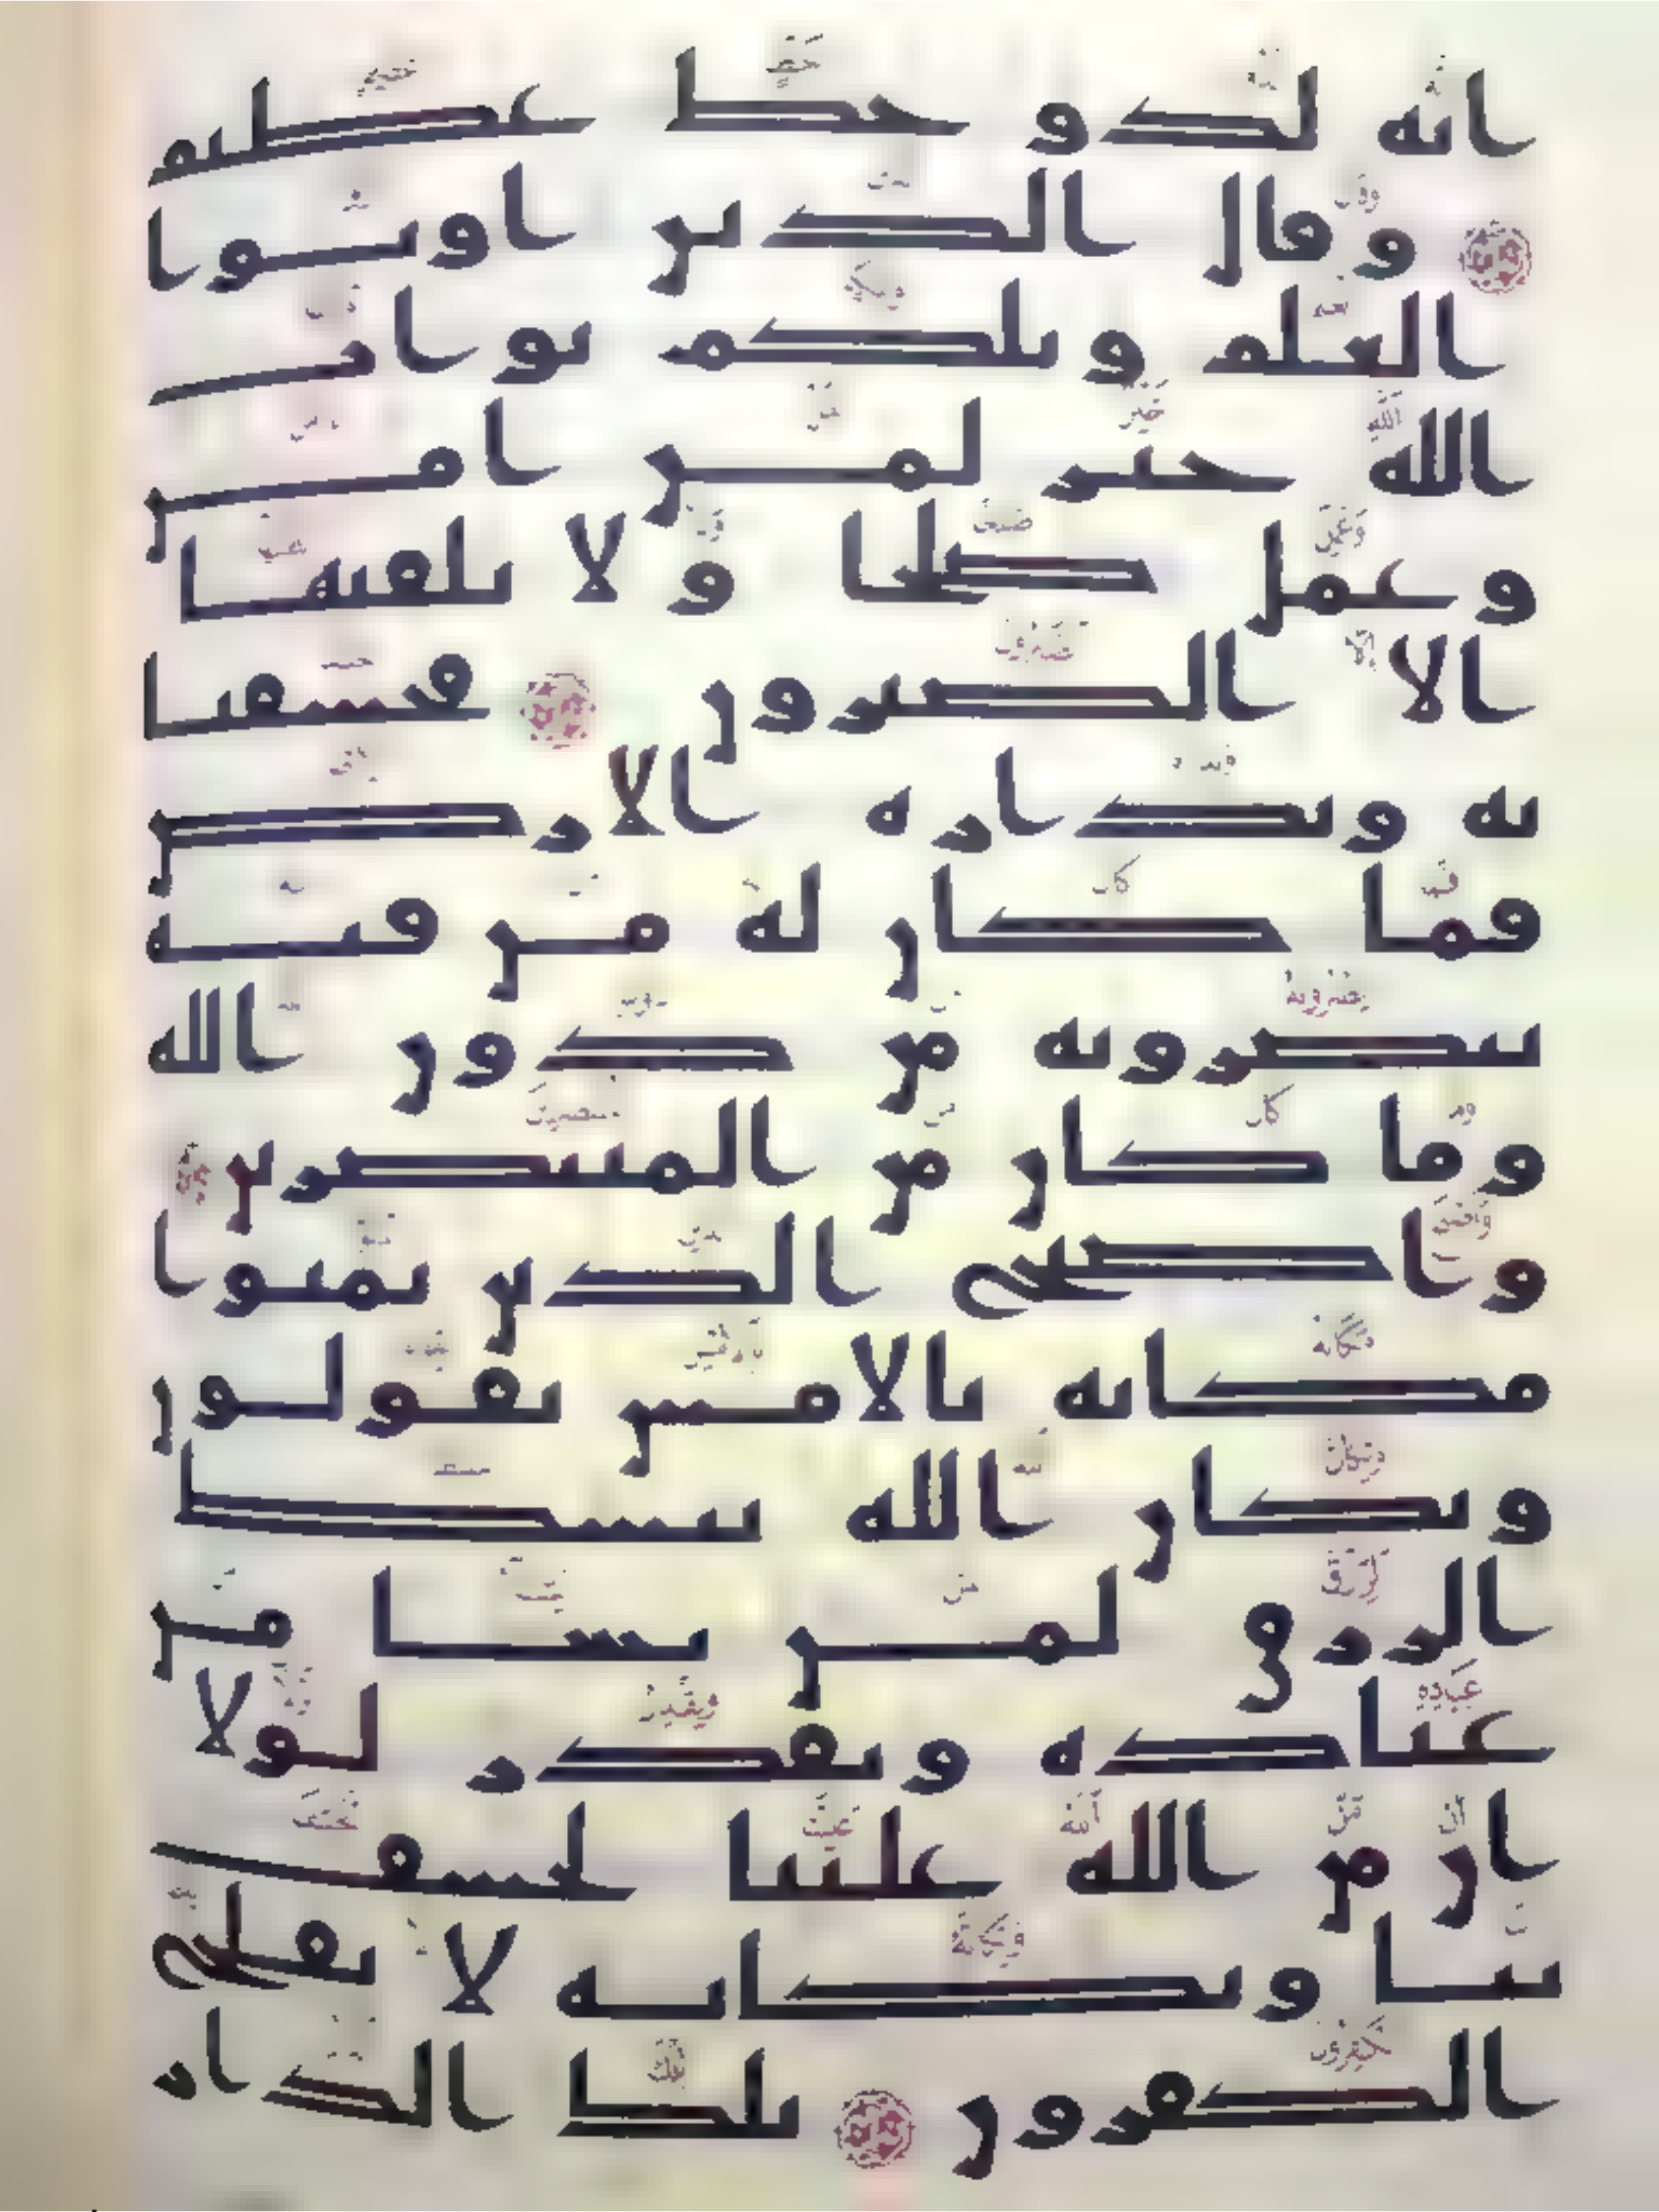 انه لذو حظ عظيم
وقال الذين اوتوا
العلم ويلكم ثواب
الله خير لمن امن
وعمل صلحا ولا يلقيها
الا الصبرون فخسفنا
به وبداره الارض
فما كان له من فئة
ينصرونه من دون الله
وما كان من المنتصرين
واصبح الذين تمنوا
مكانه بالامس يقولون
ويكان الله يبسط
الرزق لمن يشا من
عباده ويقدر لولا
ان من الله علينا لخسف
بنا ويكانه لا يفلح
الكفرون تلك الدار